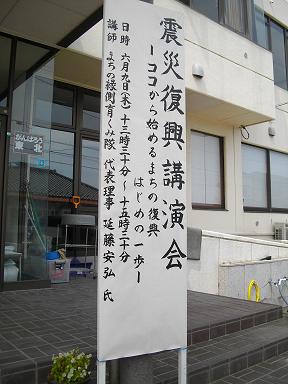 震災復興講演会
ーココから始めるまちの復興
はじめの一歩ー
日時 六月九日(木) 十三時三十分〜十五時三十分
講師 まちの縁側育くみ隊 代表理事 延藤安弘 氏
がんばろう
東北